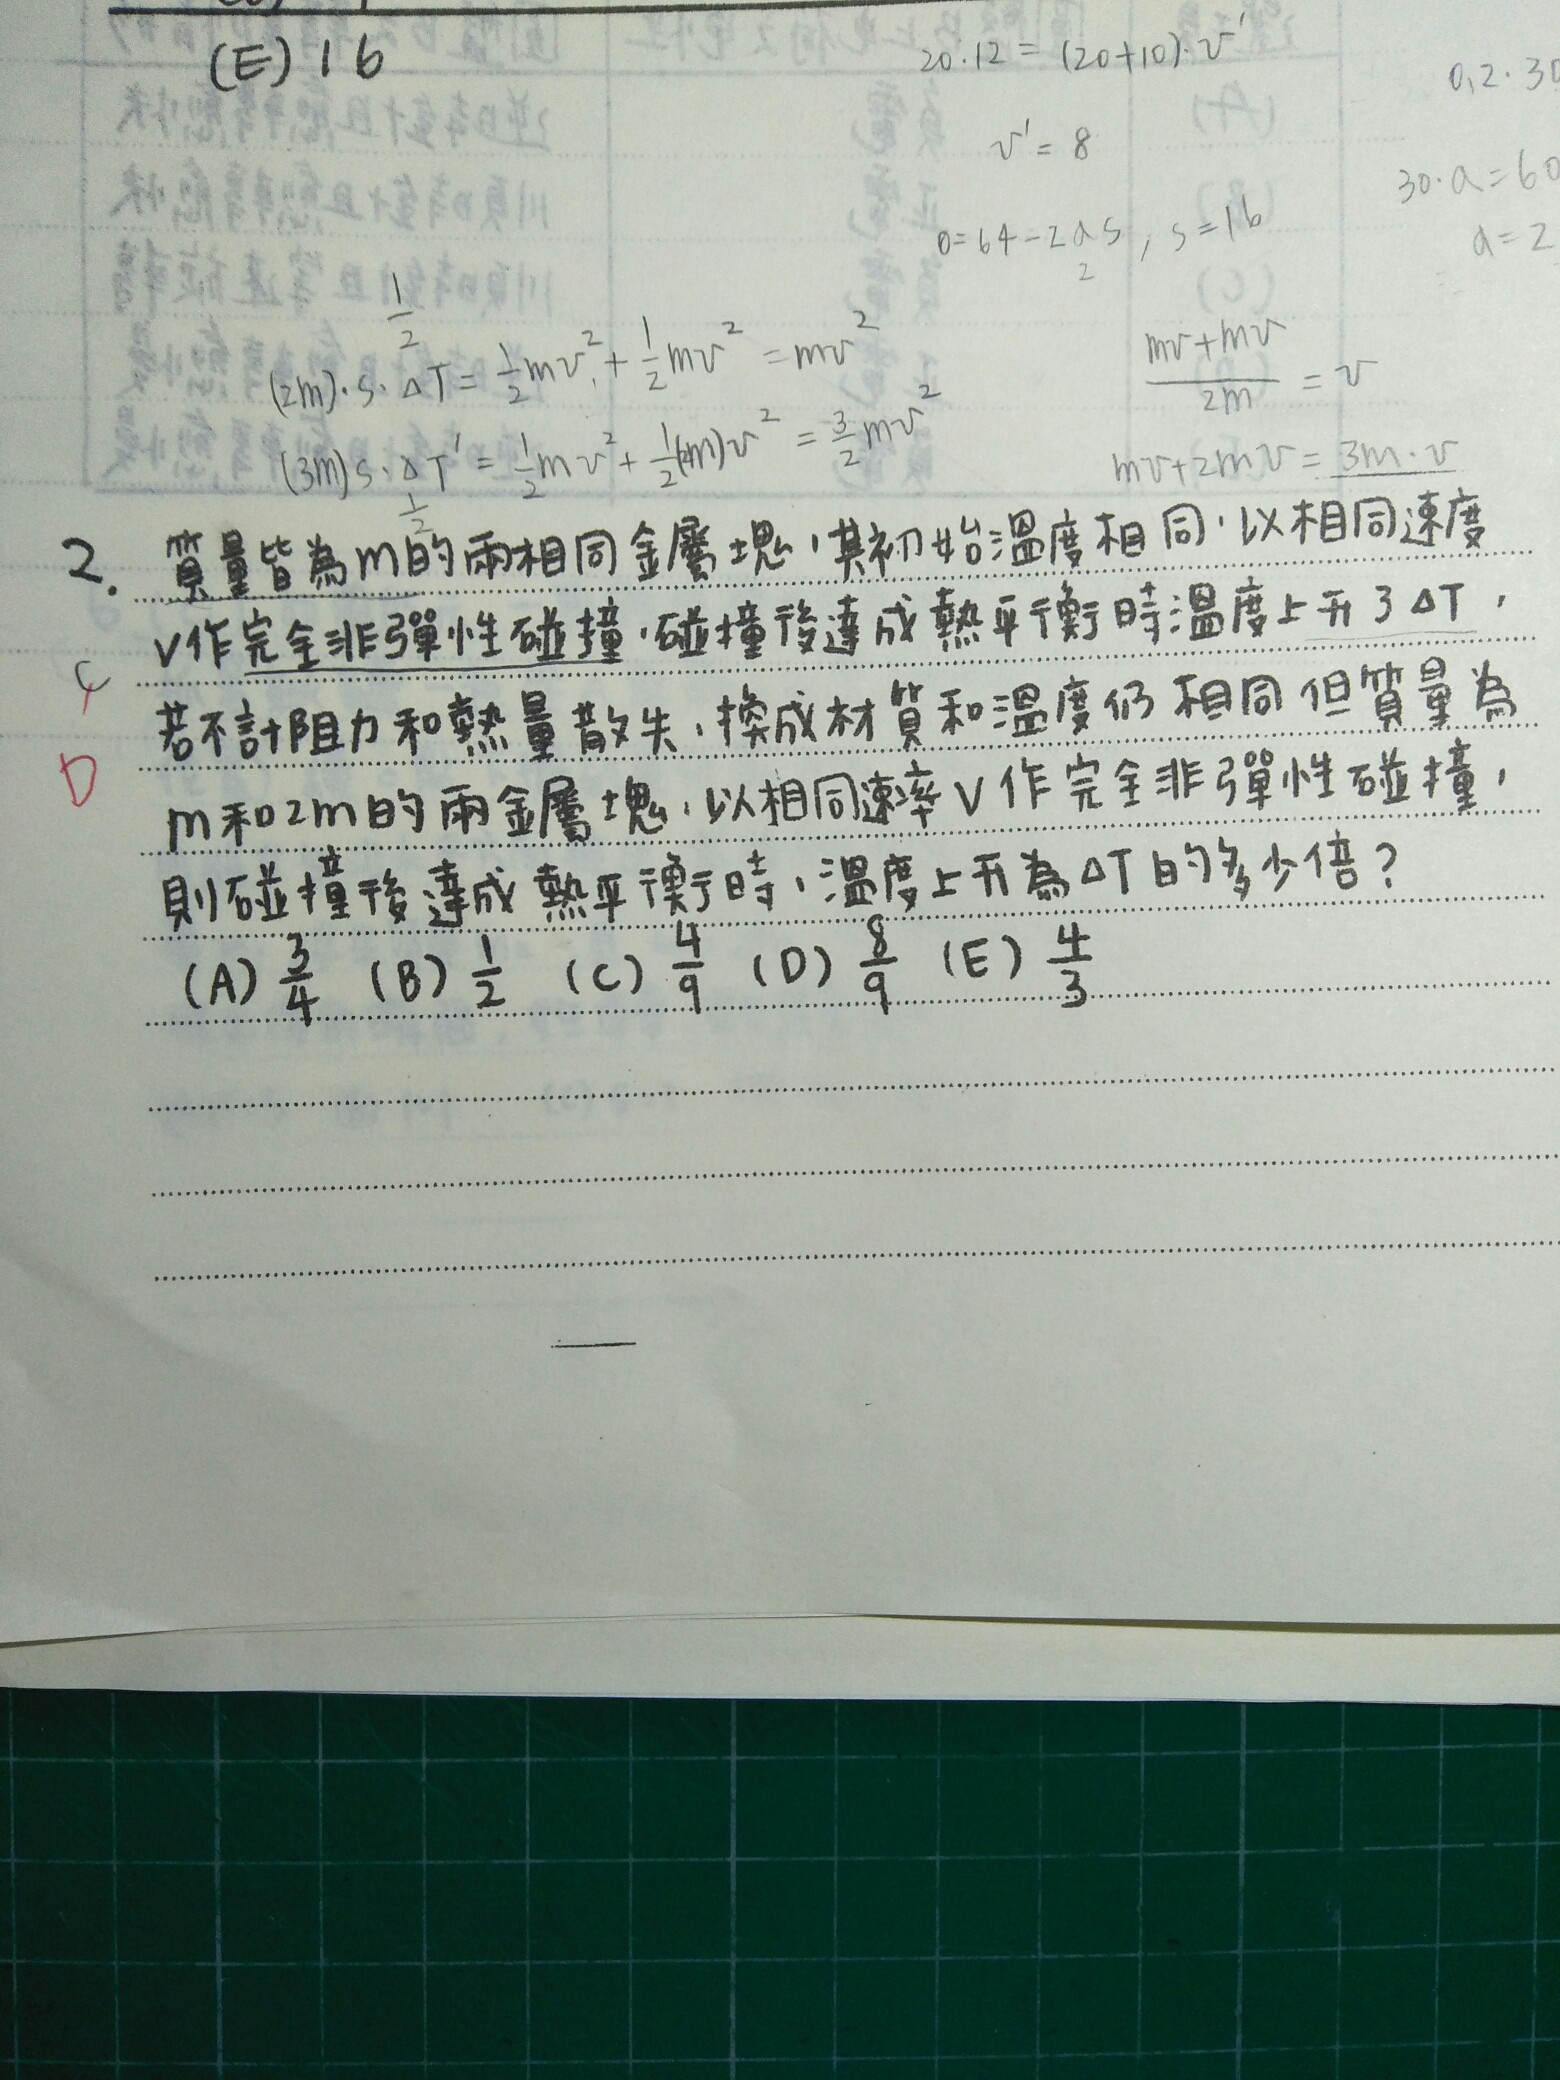 (E) 16
20·12 = (20+10)·v'
0.2·30
v' = 8
30·a=60
0=64-2as, s=16
2
a=2
1/2
(2m)·s·ΔT = 1/2mv²+1/2mv² = mv²
(mv+mv)/2m = v
(3m)s·ΔT' = 1/2mv²+1/2(2m)v² = 3/2mv²
mv+2mv = 3m·v
1/2
2. 質量皆為m的兩相同金屬塊,其初始溫度相同,以相同速度
v作完全非彈性碰撞,碰撞後達成熱平衡時溫度上升了ΔT,
C
若不計阻力和熱量散失,換成材質和溫度仍相同但質量為
D
m和2m的兩金屬塊,以相同速率v作完全非彈性碰撞,
則碰撞後達成熱平衡時,溫度上升為ΔT的多少倍?
(A) 3/4 (B) 1/2 (C) 4/9 (D) 8/9 (E) 4/3